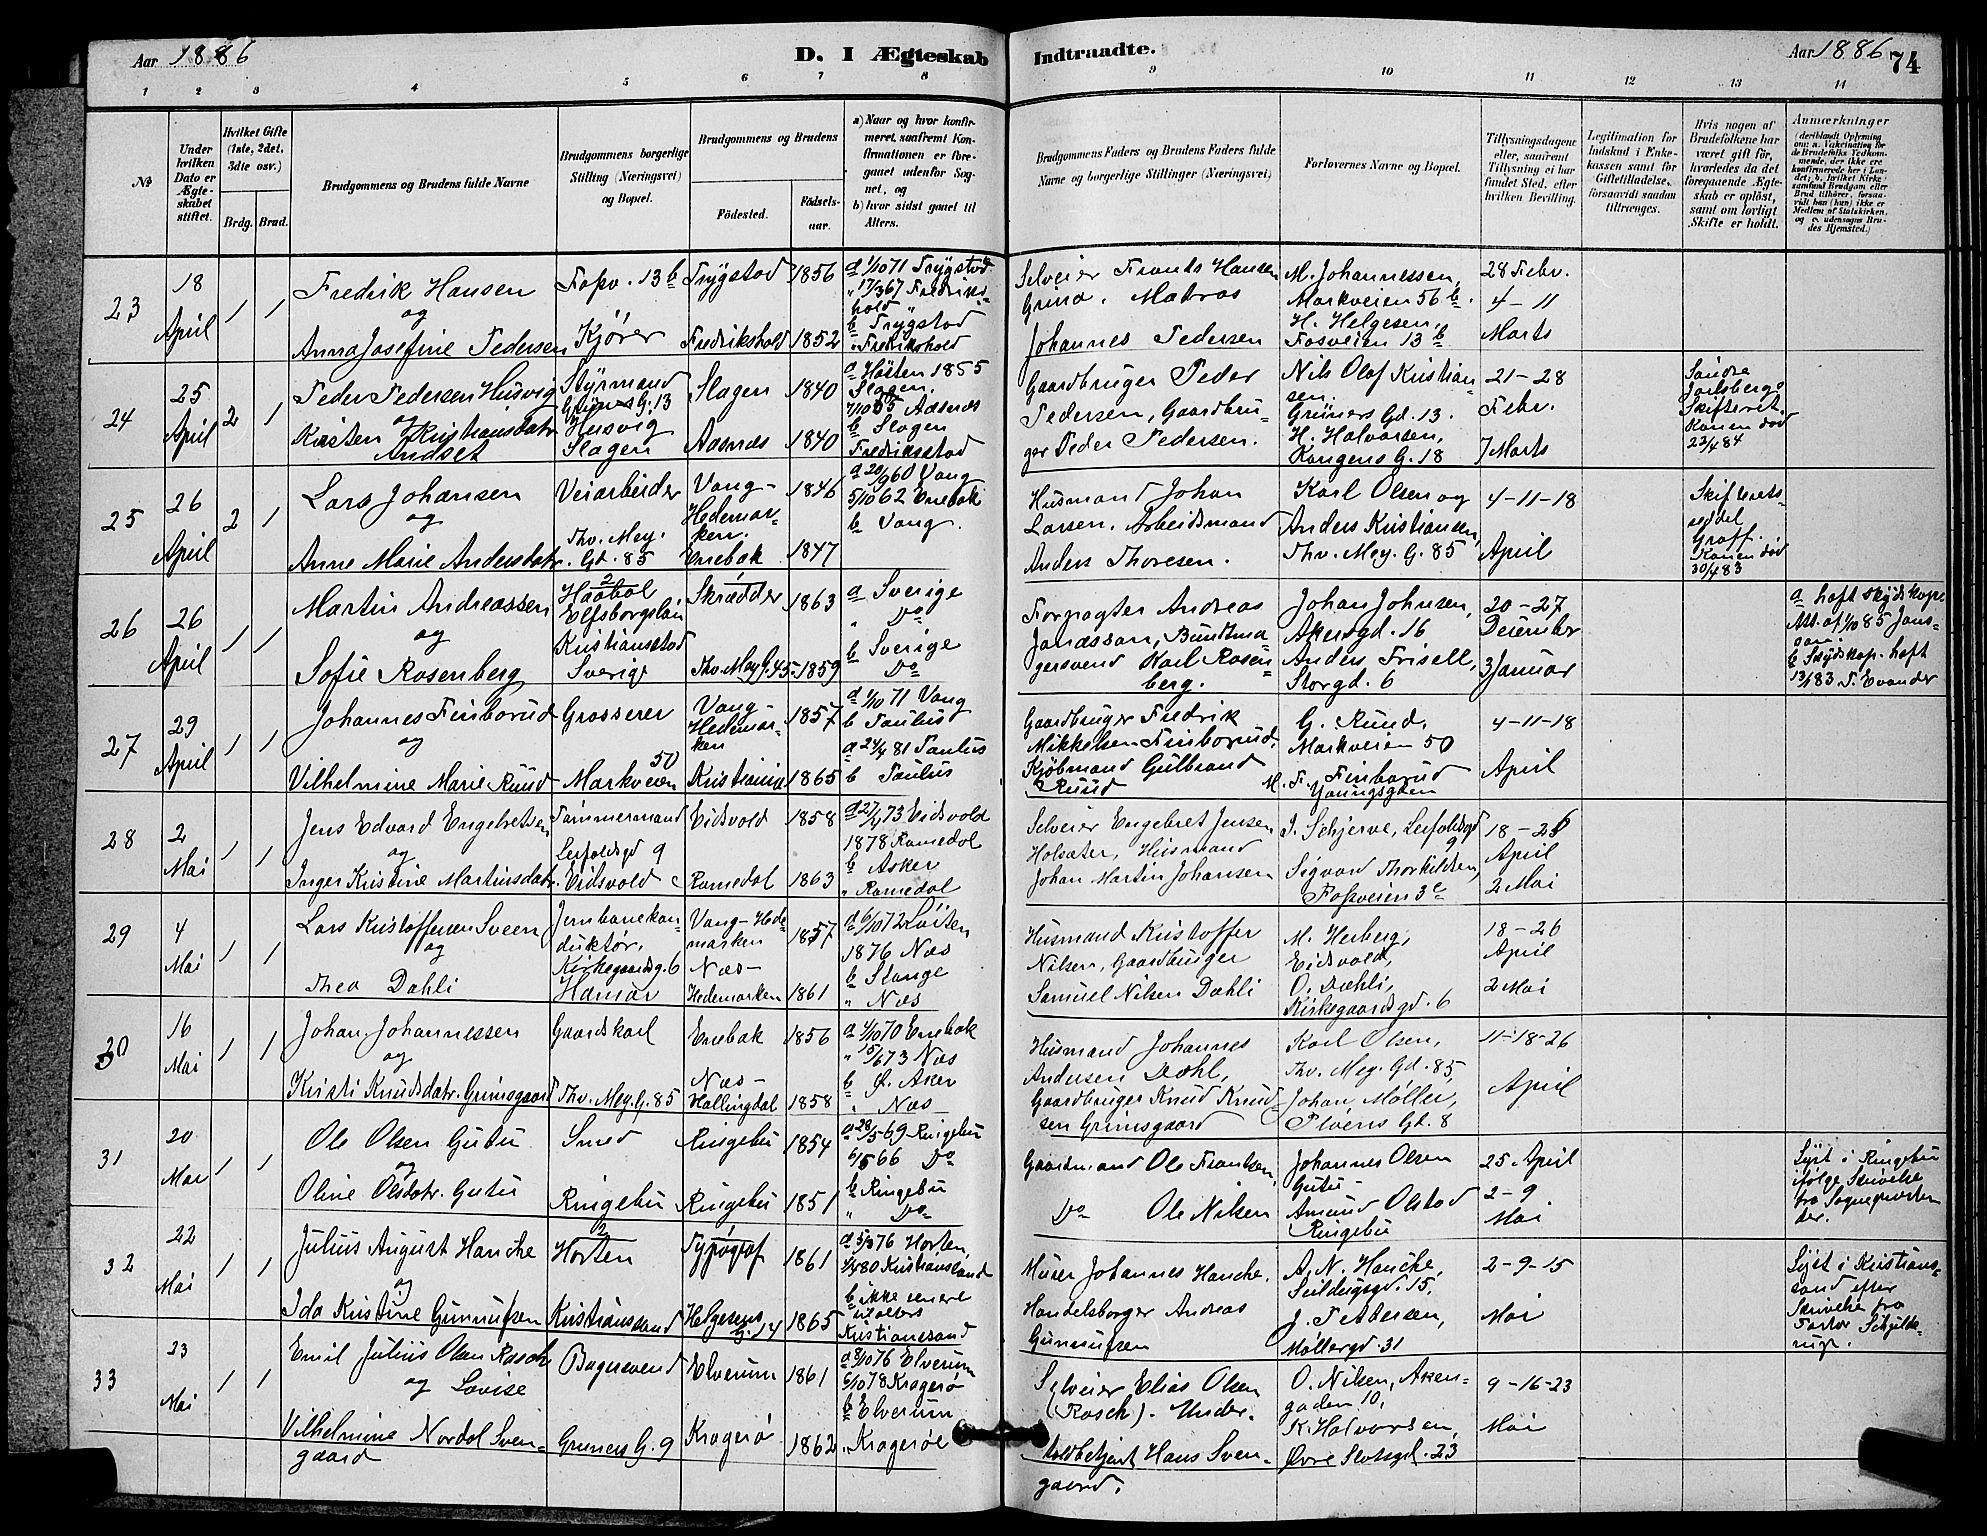 Aar 1886
D. I Ægteskab Indtraadte.
Aar 1886 74
1 2 3 4 5 6 7 8 9 10 11 12 13 14
No
Under hvilken Dato er Ægteskabet stiftet.
Hvilket Gifte (1ste, 2det, 3die osv.)
Brdg. Brud.
Brudgommens og Brudens fulde Navne
Brudgommens borgerlige Stilling (Næringsvei) og Bopæl.
Brudgommens og Brudens
Fødested.
Fødselsaar.
a) Naar og hvor konfirmeret, saafremt Konfirmationen er foregaaet udenfor Sognet, og
b) hvor sidst gaaet til Alters.
Brudgommens Faders og Brudens Faders fulde Navne og borgerlige Stillinger (Næringsvei)
Forlovernes Navne og Bopæl.
Tillysningsdagene eller, saafremt Tillysning ei har fundet Sted, efter hvilken Bevilling.
Legitimation for Indskud i Enkekassen samt for Giftetilladelse, forsaavidt saadan tiltrænges.
Hvis nogen af Brudefolkene har været gift før, hvorledes da det foregaaende Ægteskab er opløst, samt om lovligt Skifte er holdt.
Anmærkninger
(deriblandt Oplysning om: a. Vakcination for de Brudefolks Vedkommende, der ikke ere konfirmerede her i Landet; b. hvilket Kirkesamfund Brudgom eller Brud tilhører, forsaavidt han (hun) ikke er Medlem af Statskirken, og c. udensogns Brudes Hjemsted.)
23
18 April
1 1
Fredrik Hansen
og
Anna Josefine Pedersen
Fosv. 13 b
Kjører
Trygstad 1856
Fredrikshald 1852
a 1/10 71 Trygstad
" 17/3 67 Fredrikshald
b Trygstad
" Fredrikshald
Selveier Frants Hansen
Grina. Matros
Johannes Pedersen
M. Johannessen,
Markveien 56 b.
H. Helgesen,
Fosveien 13 b
28 Febr.
4-11
Marts
24
25 April
2 1
Peder Pedersen Husvig
og
Kirsten Kristiansdatr
Andset
Styrmand
Grüners G. 13
Husvig
Slagen
Slagen 1840
Aasnæs 1840
a Høsten 1855
Slagen.
7/10 55 Aasnæs
b Slagen
Fredriksstad
Gaardbruger Peder
Pedersen, Gaardbru-
ger Peder Pedersen.
Nils Olaf Kristian-
sen.
Grüners Gd. 13.
H. Halvorsen,
Kongens G. 18
21-28
Febr.
7 Marts
Søndre
Jarlsbergs
Skifteret.
Konen død
23/4 84
25
26 April
2 1
Lars Johansen
og
Anne Marie Andersdatr.
Veiarbeider
Thv. Mey.
Gd. 85
Vang-
Hedemar-
ken. 1846
Enebak 1847
a 20/9 60 Vang
5/10 62 Enebak
b Vang.
Husmand Johan
Larsen. Arbeidsmand
Anders Thoresen.
Karl Olsen og
Anders Kristiansen,
Thv. Mey. G. 85
4-11-18
April
Skifterets-
seddel
Graff.
Konen død
30/4 83
26
26 April
1 1
Martin Andreassen
og
Sofie Rosenberg
Haabol
Elfsborgslän
Kristianstad
Sverige
Skrædder 1863
Thv. Mey G. 45. 1859
a Sverige
" Do
b Sverige
Do
Forpagter Andreas
Jonasson, Buntma-
gersvend Karl Rosen-
berg.
Johan Johnsen,
Akersgd. 16
Anders Frisell,
Storgd. 6
20-27
December
3 Januar
a haft skydskopr
Att. af 1/10 85 Jons-
son.
b Skydskop. haft
13/1 83 T. Evander
27
29 April
1 1
Johannes Finborud
og
Vilhelmine Marie Ruud
Grosserer
50
Markveien
Vang-
Hedemar-
ken 1857
Kristiania 1865
a 1/10 71 Vang
b Paulus
a 24/4 81 Paulus
b Paulus
Gaardbruger Fredrik
Mikkelsen Finborud.
Kjøbmand Gulbrand
Ruud
G. Ruud.
Markveien 50
M. F. Finborud
Youngsgden
4-11-18
April
28
2 Mai
1 1
Jens Edvard Engebretsen
og
Inger Kristine Martinsdatr.
Tømmermand
Leifoldsgd 9
Eidsvold
Eidsvold 1858
Romedal 1863
a 27/4 73 Eidsvold
1878 Romedal
b Asker
" Romedal
Selveier Engebret Jensen
Holsæter, Husmand
Johan Martin Johansen
J. Schjerve, Leifoldsgd
9
Sigvard Thorkildsen,
Fossveien 3 c
18-26
April
2 Mai
29
4 Mai
1 1
Lars Kristoffersen Sveen
og
Thea Dahli
Jernbanekon-
duktør,
Kirkegaardsg. 6
Hamar
Vang-Hede-
marken 1857
Næs-
Hedemarken 1861
a 6/10 72 Løiten
1876 Næs
b Stange
" Næs
Husmand Kristoffer
Nilsen, Gaardbruger
Samuel Nilsen Dæhli
M. Herberg,
Eidsvold,
O. Dæhli,
Kirkegaardsgd. 6
18-26
April
2 Mai
30
16 Mai
1 1
Johan Johannessen
og
Kristi Knudsdatr. Grimsgaard
Gaardskarl
Thv. Mey. G. 85
Enebak 1856
Næs-
Hallingdal 1858
a 1/10 70 Enebak
" 15/6 73 Næs
b Ø. Aker
" Næs
Husmand Johannes
Andersen Dahl,
Gaardbruger Knud Knud-
sen Grimsgaard
Karl Olsen,
Thv. Mey. Gd. 85,
Johan Møller,
Pløens Gd. 8
11-18-26
April
31
20 Mai
1 1
Ole Olsen Gutu
og
Oline Olsdatr. Gutu
Smed
Ringebu
Ringebu 1854
Ringebu 1851
a 28/5-69 Ringebu
6/5 66 Do
b Ringebu
" Do
Gaardmand Ole Frantsen,
Do Ole Nilsen
Johannes Olsen
Gutu-
Amund Olstad
Ringebu
25 April
2-9
Mai
Lyst i Ringebu
ifølge Skrivelse
fra Sognepresten
der.
32
22 Mai
1 1
Julius August Hanche
og
Ida Kristine Gunnufsen
Horten
Kristianssand
Typograf 1861
Helgesens
G. 14 1865
a 5/3 76 Horten,
1/4 80 Kristianssand
b ikke senere
til alters
Kristianssand
Murer Johannes Hanche.
Handelsborger Andreas
Gunnufsen
A. N. Hanche,
Seildugsgd. 15,
J. Pettersen,
Møllergd. 31
2-9-15
Mai
Lyst i Kristians-
sand efter
Skrivelse fra
Pastor Schjelde-
rup.
33
23 Mai
1 1
Emil Julius Olsen Rasch
og Lovise
Vilhelmine Nordal Sven-
gaard
Bagersvend
Gruners G. 9
Elverum 1861
Kragerø 1862
a 8/10 76 Elverum
6/10 78 Kragerø
b Elverum
" Kragerøe
Selveier Elias Olsen
(Rasch). Under-
toldbetjent Hans Sven-
gaard.
O. Nilsen, Aken-
gaden 10,
K. Halvorsen,
Øvre Slotsgd. 23
9-16-23
Mai